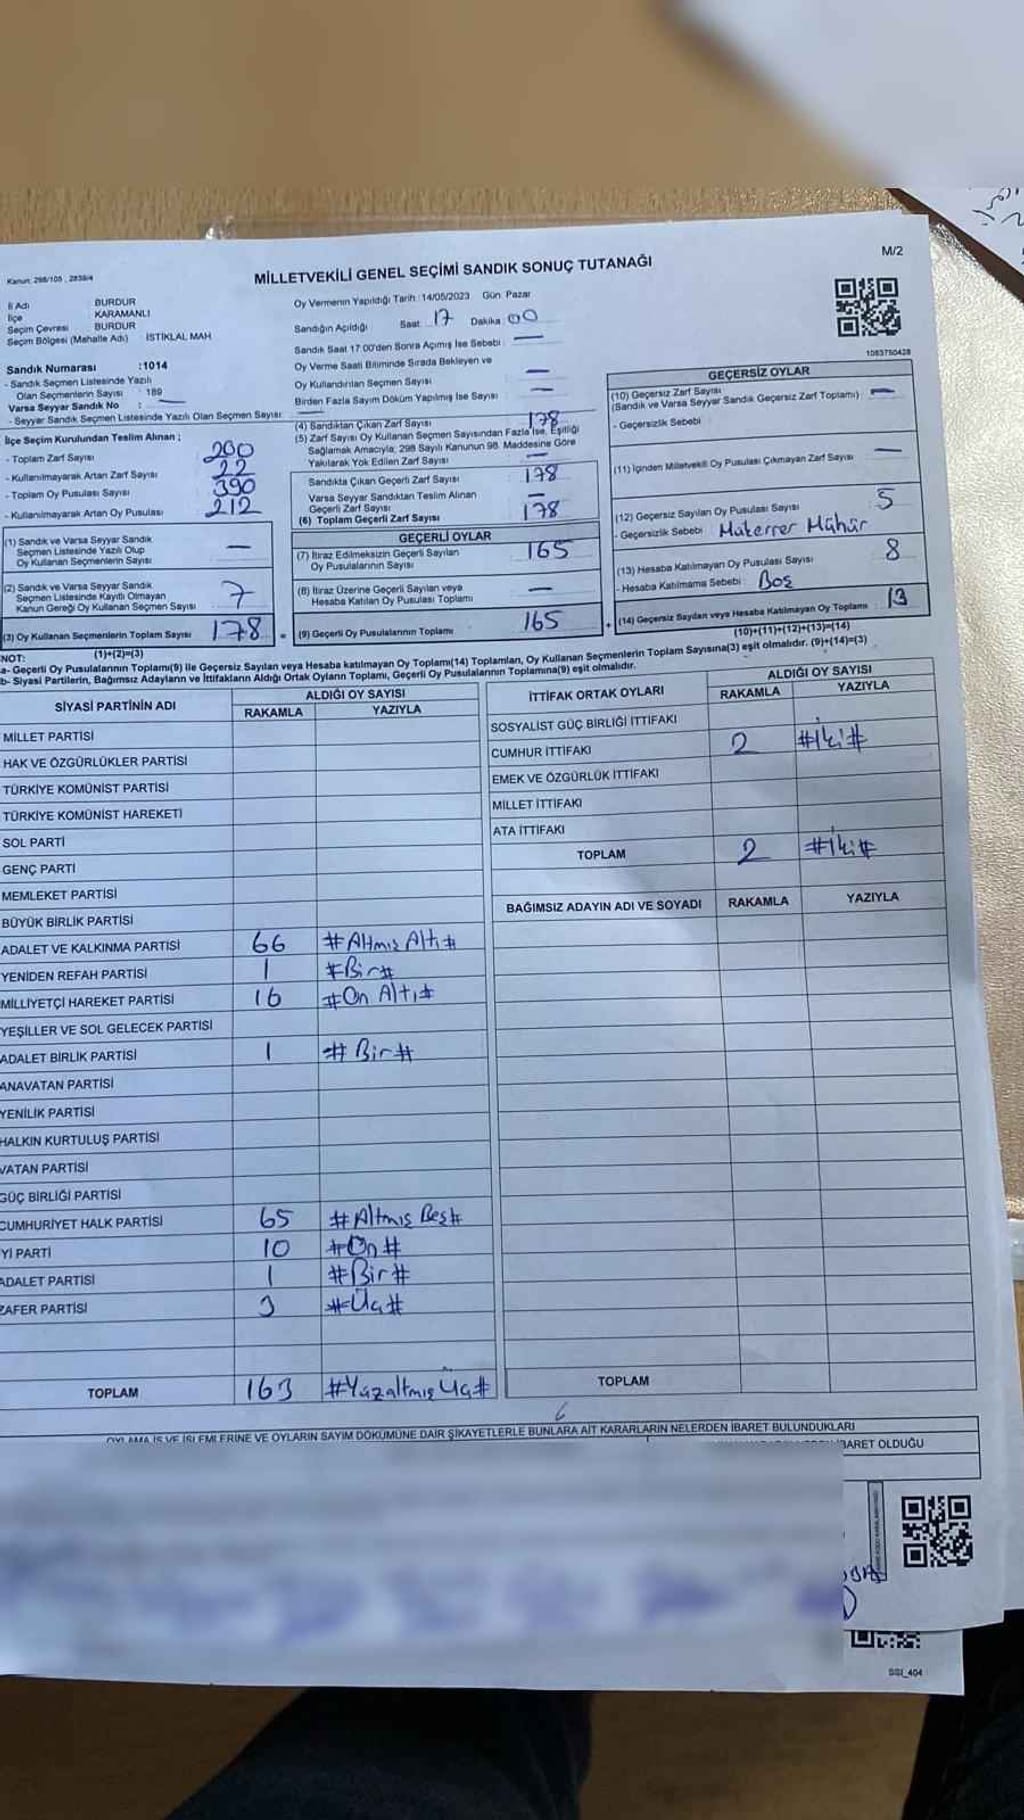 M/2
Kanun: 298/105 , 2839/4
MİLLETVEKİLİ GENEL SEÇİMİ SANDIK SONUÇ TUTANAĞI
İl Adı BURDUR
İlçe KARAMANLI
Seçim Çevresi BURDUR
Seçim Bölgesi (Mahalle Adı) İSTİKLAL MAH
Sandık Numarası :1014
- Sandık Seçmen Listesinde Yazılı
Olan Seçmenlerin Sayısı : 189
Varsa Seyyar Sandık No : —
- Seyyar Sandık Seçmen Listesinde Yazılı Olan Seçmen Sayısı: —
İlçe Seçim Kurulundan Teslim Alınan ;
- Toplam Zarf Sayısı 200
- Kullanılmayarak Artan Zarf Sayısı 22
- Toplam Oy Pusulası Sayısı 390
- Kullanılmayarak Artan Oy Pusulası 212
(1) Sandık ve Varsa Seyyar Sandık
Seçmen Listesinde Yazılı Olup
Oy Kullanan Seçmenlerin Sayısı —
(2) Sandık ve Varsa Seyyar Sandık
Seçmen Listesinde Kayıtlı Olmayan
Kanun Gereği Oy Kullanan Seçmen Sayısı 7
(3) Oy Kullanan Seçmenlerin Toplam Sayısı 178 =
(1)+(2)=(3)
Oy Vermenin Yapıldığı Tarih :14/05/2023 Gün: Pazar
Sandığın Açıldığı Saat: 17 Dakika: 00
Sandık Saat 17:00'den Sonra Açılmış İse Sebebi : —
Oy Verme Saati Bitiminde Sırada Bekleyen ve
Oy Kullandırılan Seçmen Sayısı —
Birden Fazla Sayım Döküm Yapılmış İse Sayısı —
(4) Sandıktan Çıkan Zarf Sayısı : 178
(5) Zarf Sayısı Oy Kullanan Seçmen Sayısından Fazla İse, Eşitliği
Sağlamak Amacıyla; 298 Sayılı Kanunun 98. Maddesine Göre
Yakılarak Yok Edilen Zarf Sayısı —
Sandıkta Çıkan Geçerli Zarf Sayısı 178
Varsa Seyyar Sandıktan Teslim Alınan
Geçerli Zarf Sayısı —
(6) Toplam Geçerli Zarf Sayısı 178
GEÇERLİ OYLAR
(7) İtiraz Edilmeksizin Geçerli Sayılan
Oy Pusulalarının Sayısı 165
(8) İtiraz Üzerine Geçerli Sayılan veya
Hesaba Katılan Oy Pusulası Toplamı —
(9) Geçerli Oy Pusulalarının Toplamı 165 +
1083750428
GEÇERSİZ OYLAR
(10) Geçersiz Zarf Sayısı
(Sandık ve Varsa Seyyar Sandık Geçersiz Zarf Toplamı) —
- Geçersizlik Sebebi
(11) İçinden Milletvekili Oy Pusulası Çıkmayan Zarf Sayısı —
(12) Geçersiz Sayılan Oy Pusulası Sayısı 5
- Geçersizlik Sebebi : Mükerrer Mühür
(13) Hesaba Katılmayan Oy Pusulası Sayısı 8
- Hesaba Katılmama Sebebi : Boş
(14) Geçersiz Sayılan veya Hesaba Katılmayan Oy Toplamı 13
(10)+(11)+(12)+(13)=(14)
NOT:
a- Geçerli Oy Pusulalarının Toplamı(9) ile Geçersiz Sayılan veya Hesaba katılmayan Oy Toplamı(14) Toplamları, Oy Kullanan Seçmenlerin Toplam Sayısına(3) eşit olmalıdır. (9)+(14)=(3)
b- Siyasi Partilerin, Bağımsız Adayların ve İttifakların Aldığı Ortak Oyların Toplamı, Geçerli Oy Pusulalarının Toplamına(9) eşit olmalıdır.
SİYASİ PARTİNİN ADI ALDIĞI OY SAYISI
RAKAMLA YAZIYLA
MİLLET PARTİSİ
HAK VE ÖZGÜRLÜKLER PARTİSİ
TÜRKİYE KOMÜNİST PARTİSİ
TÜRKİYE KOMÜNİST HAREKETİ
SOL PARTİ
GENÇ PARTİ
MEMLEKET PARTİSİ
BÜYÜK BİRLİK PARTİSİ
ADALET VE KALKINMA PARTİSİ 66 #Altmış Altı#
YENİDEN REFAH PARTİSİ 1 #Bir#
MİLLİYETÇİ HAREKET PARTİSİ 16 #On Altı#
YEŞİLLER VE SOL GELECEK PARTİSİ
ADALET BİRLİK PARTİSİ 1 #Bir#
ANAVATAN PARTİSİ
YENİLİK PARTİSİ
HALKIN KURTULUŞ PARTİSİ
VATAN PARTİSİ
GÜÇ BİRLİĞİ PARTİSİ
CUMHURİYET HALK PARTİSİ 65 #Altmış Beş#
Yİ PARTİ 10 #On#
ADALET PARTİSİ 1 #Bir#
ZAFER PARTİSİ 3 #Üç#
TOPLAM 163 #Yüzaltmış Üç#
İTTİFAK ORTAK OYLARI ALDIĞI OY SAYISI
RAKAMLA YAZIYLA
SOSYALİST GÜÇ BİRLİĞİ İTTİFAKI
CUMHUR İTTİFAKI 2 #İki#
EMEK VE ÖZGÜRLÜK İTTİFAKI
MİLLET İTTİFAKI
ATA İTTİFAKI
TOPLAM 2 #İki#
BAĞIMSIZ ADAYIN ADI VE SOYADI RAKAMLA YAZIYLA
TOPLAM
OYLAMA İŞ VE İŞLEMLERİNE VE OYLARIN SAYIM DÖKÜMÜNE DAİR ŞİKAYETLERLE BUNLARA AİT KARARLARIN NELERDEN İBARET BULUNDUKLARI
BARET OLDUĞU
SSI_404